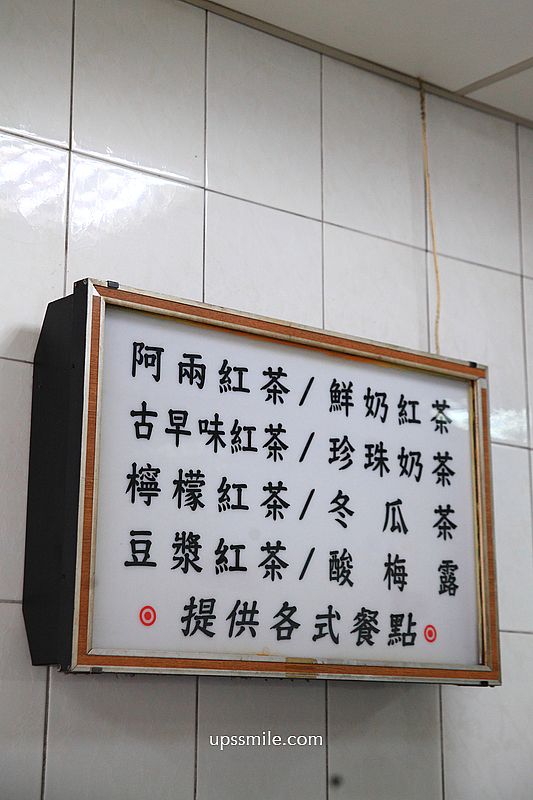 阿兩紅茶/鮮奶紅茶
古早味紅茶/珍珠奶茶
檸檬紅茶/冬瓜茶
豆漿紅茶/酸梅露
提供各式餐點
upssmile.com